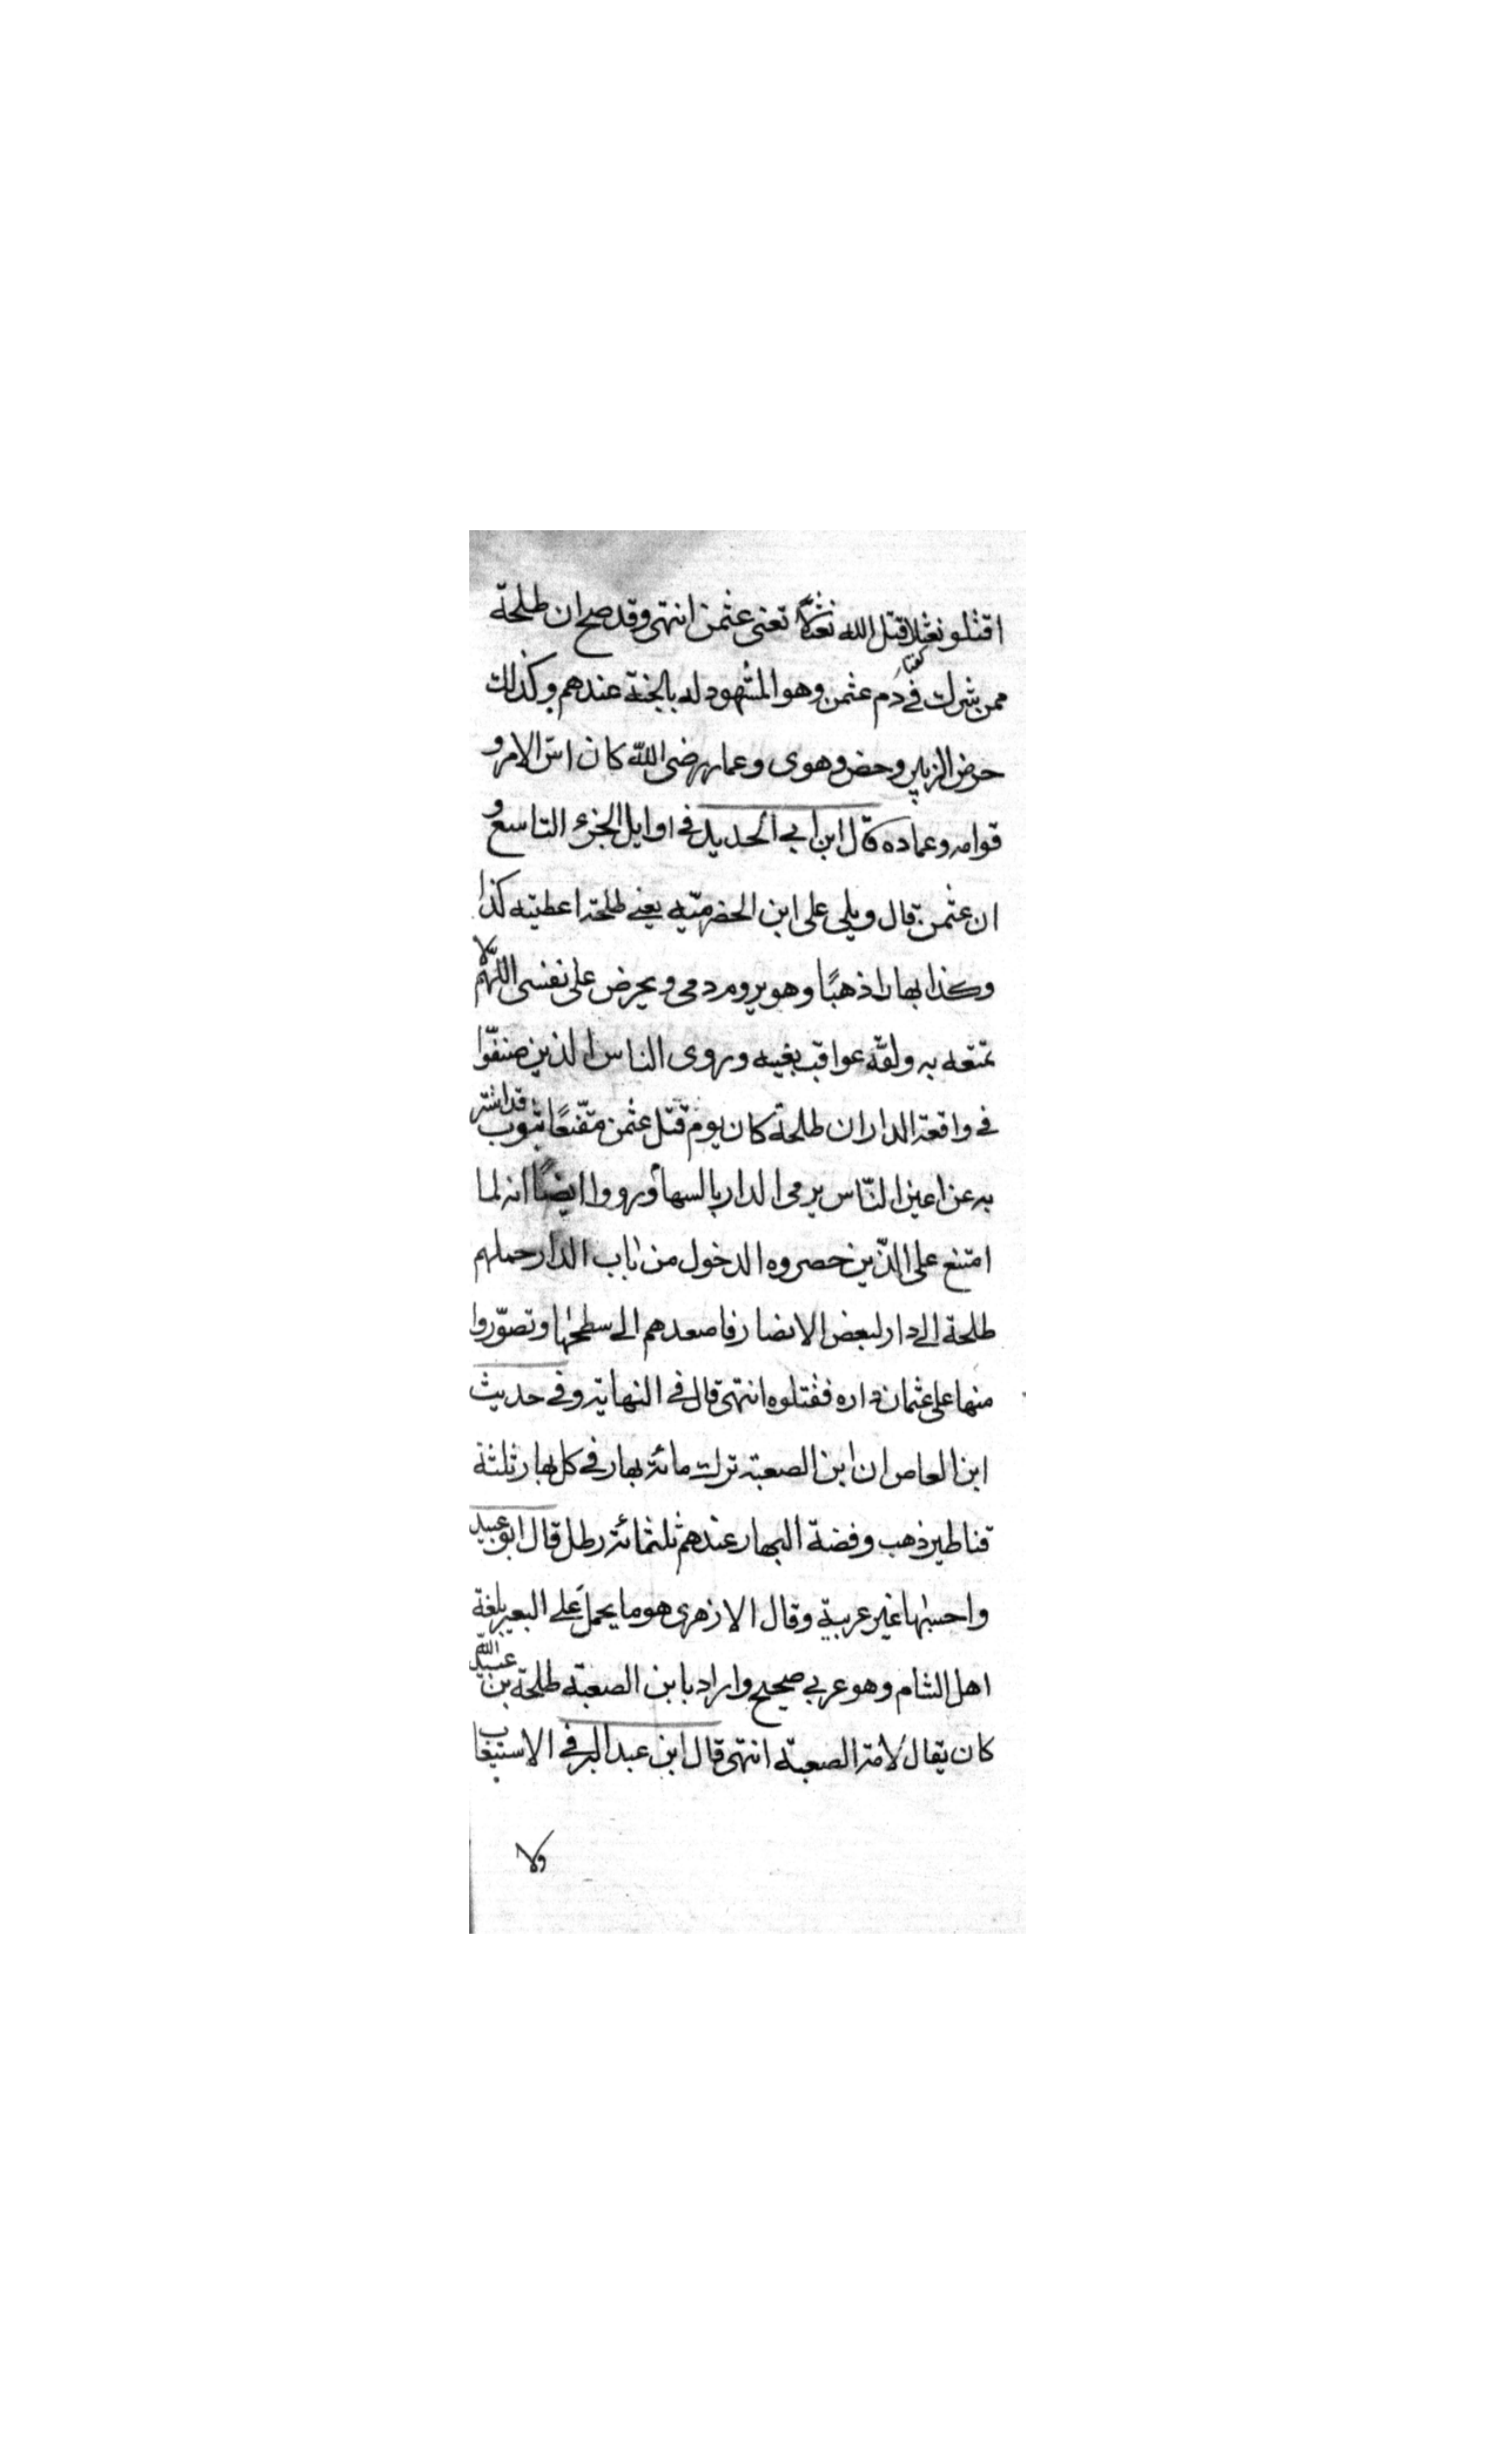 اقتلو نعثلا قتل الله نعثلًا تعنى عثمن انتهى وقد صح ان طلحة
ممن شرك في دم عثمن وهو المشهود له بالجنة عندهم وكذلك
حرض الزبير وحض وهوى وعمار رضى الله كان اسّ الامر و
قوامه وعماده قال ابن ابي الحديد في اوايل الجزء التاسع و
ان عثمن قال ويلي على ابن الحضرميّه يعنى طلحة اعطيته كذا
وكذا بهارا ذهبًا وهو يروم دمى ويحرض على نفسى اللهم لا
تمتعه به ولقّه عواقب بغيه وروى الناس الذين صنفوا
في واقعة الدار ان طلحة كان يوم قتل عثمن مقنّعًا بثوب قد استتر
به عن اعين النّاس يرمى الدار بالسهام ورووا ايضًا انه لما
امتنع على الّذين حصروه الدخول من باب الدار حملهم
طلحة الى دار لبعض الانصار فاصعدهم الى سطحها وتصوّروا
منها على عثمان داره فقتلوه انتهى قال في النهاية وفي حديث
ابن العاص ان ابن الصعبة ترك مائة بهار في كل بهار ثلثة
قناطير ذهب وفضة البهار عندهم ثلثمائة رطل قال ابو عبيد
واحسبها غير عربية وقال الازهرى هو ما يحمل على البعير بلغة
اهل الشام وهو عربي صحيح واراد بابن الصعبة طلحة بن عبيد الله
كان يقال لامّه الصعبة انتهى قال ابن عبد البر في الاستيعاب
ولا